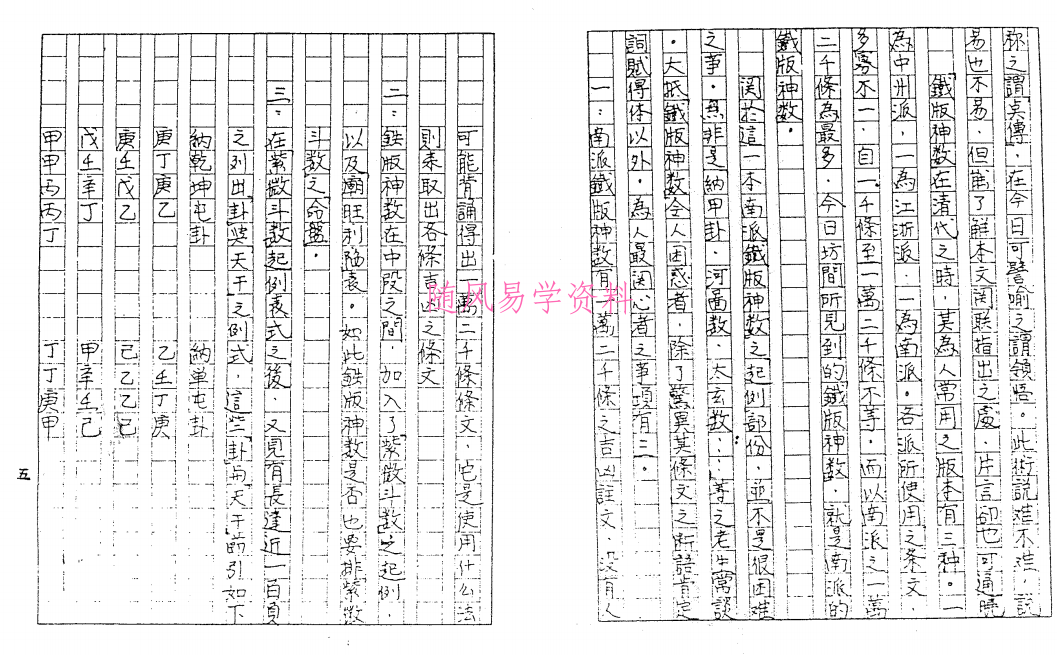 称之謂真傳，在今日可譬喻之謂領悟。此術説难不难，説
易也不易，但能了觧本文関联指出之處，片言卻也可通曉
鐵版神数在清代之時，其為人常用之版本有三种。一
為中州派，一為江浙派，一為南派。各派所使用之条文，
多寡不一，自一千條至一萬二千條不等，而以南派之一萬
二千條為最多，今日坊間所見到的鐵版神数，就是南派的
鐵版神数。
関於這一本南派鐵版神数之起例部份，並不是很困难
之事，無非是納甲卦、河畵数、太玄数…等之老生常談
。大抵鐵版神数令人困惑者，除了驚異其條文之断語肯定
詞賦得体以外，為人最関心者之事項有三。
一：南派鐵版神数有一萬二千條之吉凶註文，没有人
可能背誦得出一萬二千條條文，它是使用什么法
則来取出各條吉凶之條文
二：鉄版神数在中段之間，加入了紫微斗数之起例，
以及廟旺利陥表。如此鉄版神数是否也要排紫微
斗数之命盤。
三：在紫微斗数起例表式之後，又見有長達近一百頁
之列出「卦與天干」之例式，這些「卦」与「天干」節引如下
納乾坤屯卦 納单屯卦
庚丁庚乙 乙壬丁庚
庚壬戊乙 己乙乙巳
戊壬辛丁 甲辛壬己
甲甲丙丙丁 丁丁庚甲
五
随风易学资料